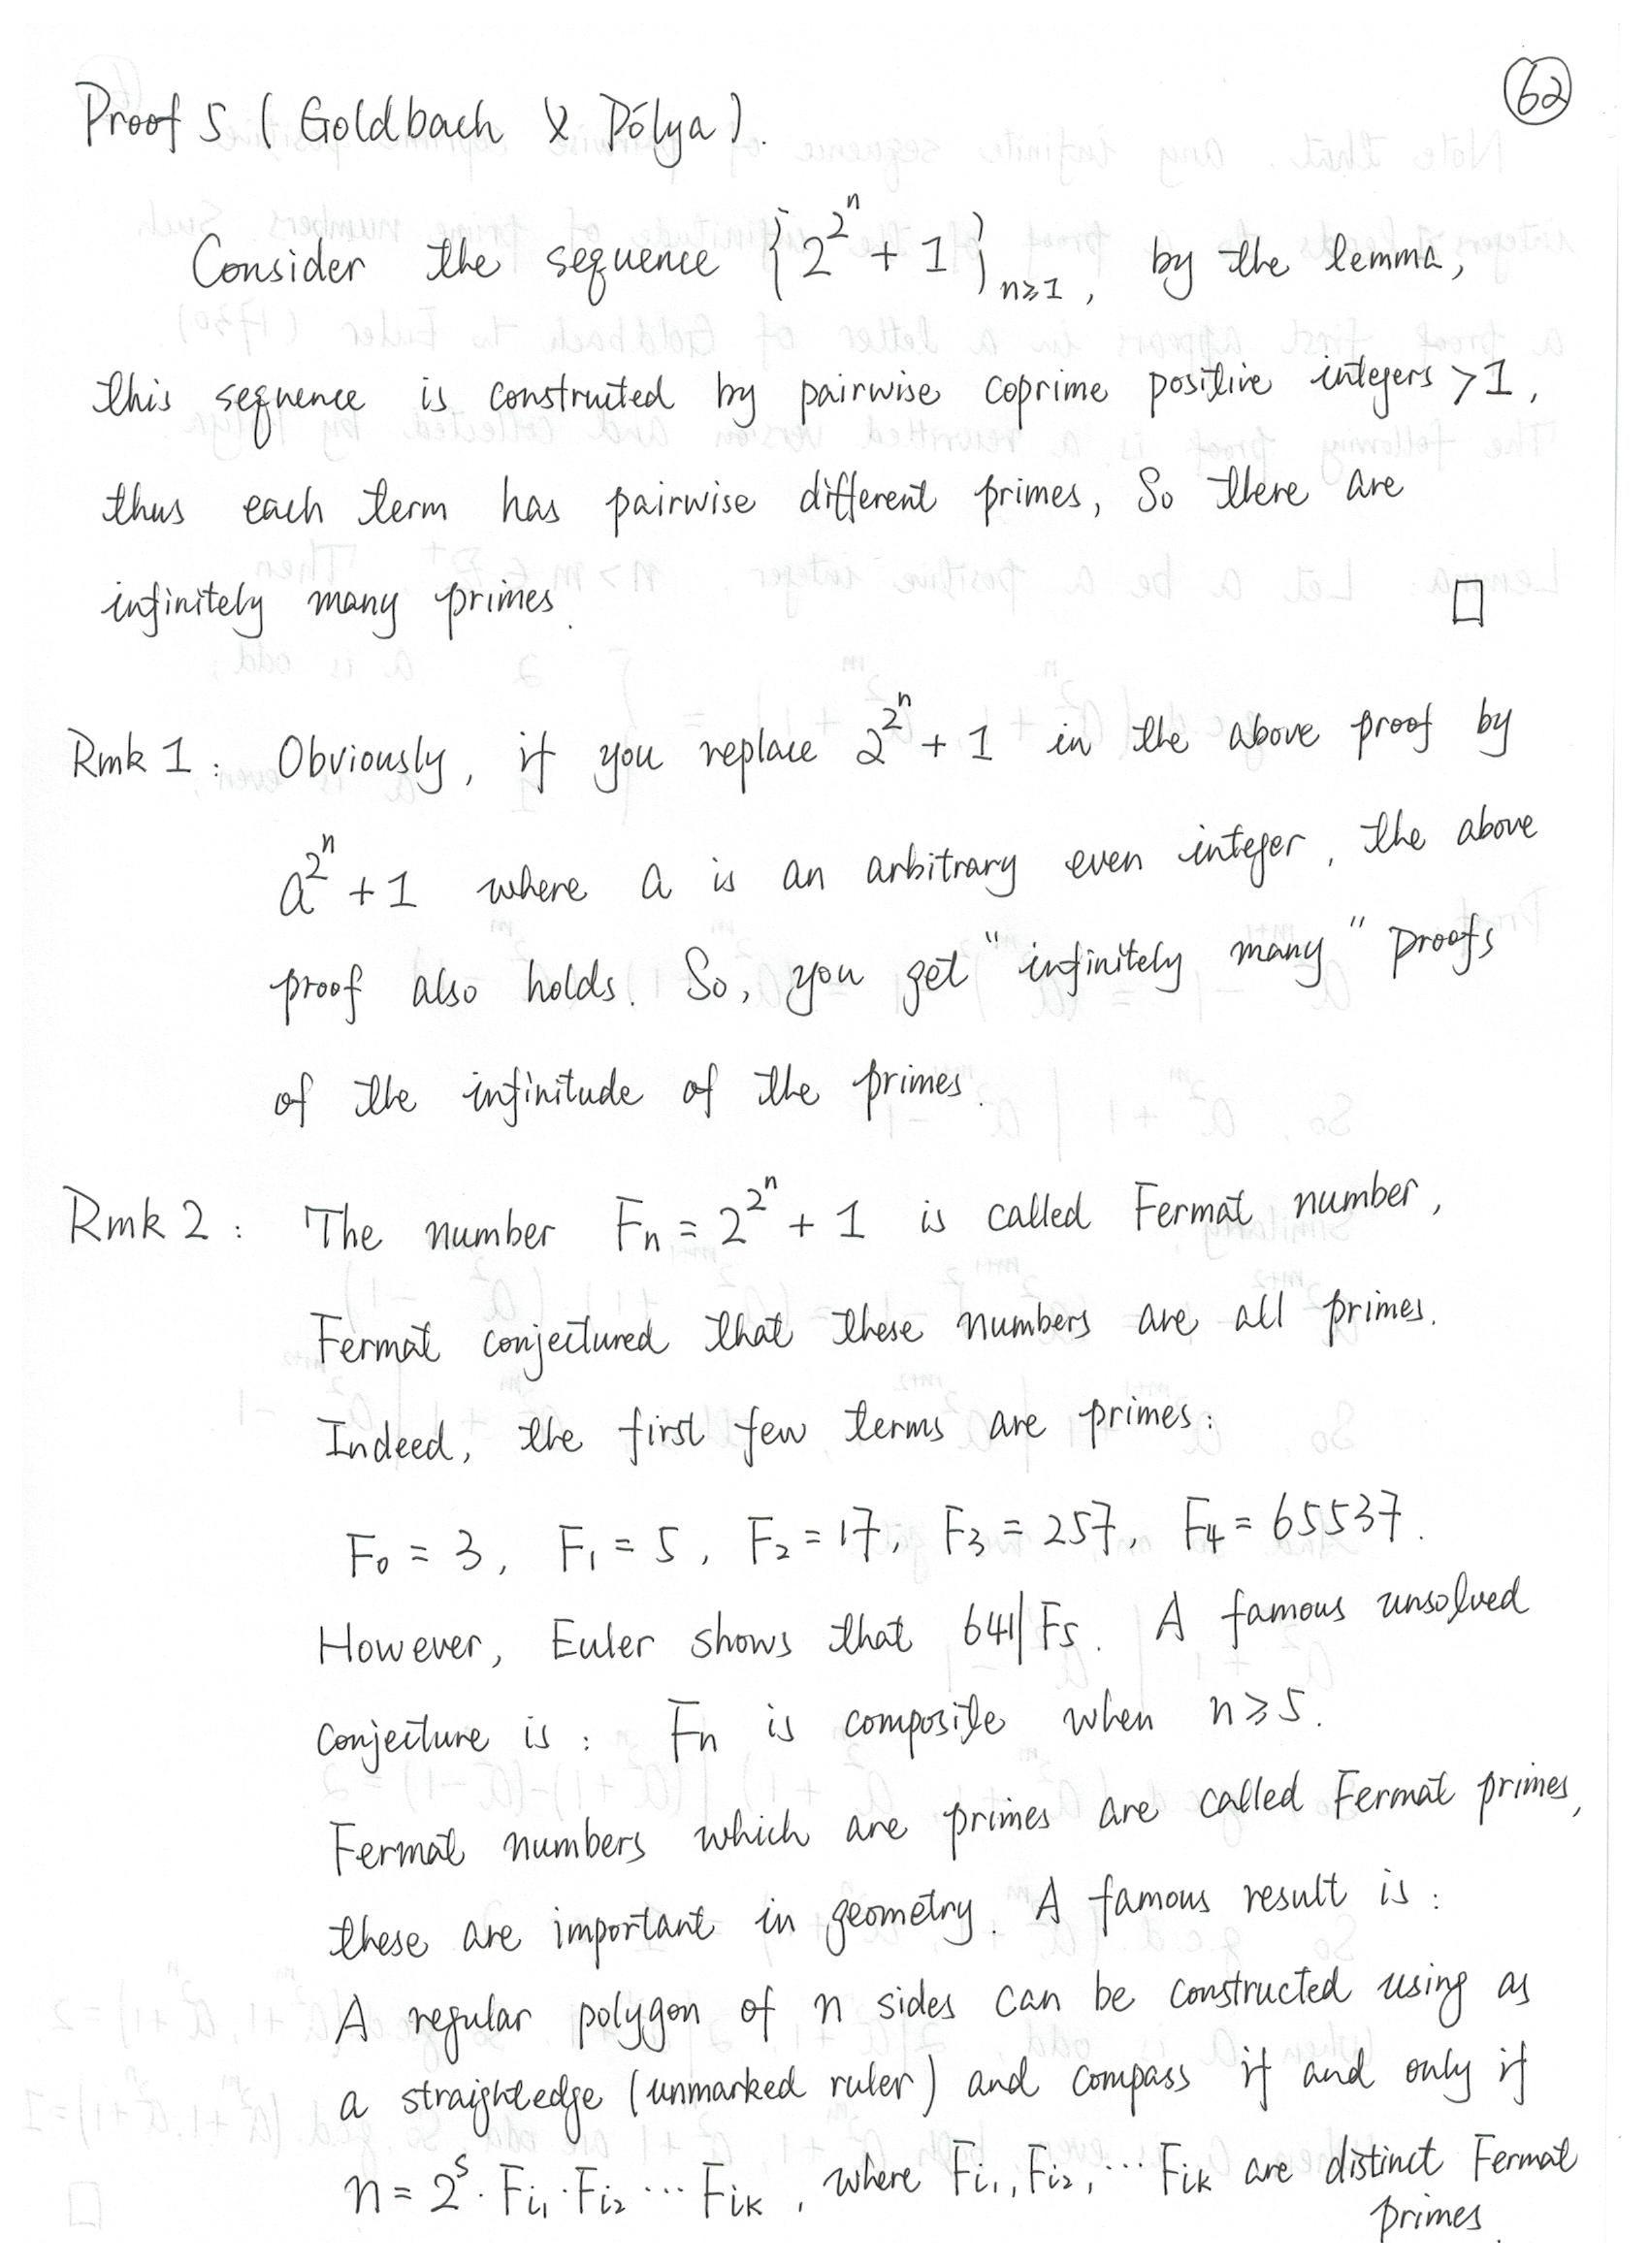 62
Proof 5 (Goldbach & Pólya).
Consider the sequence {2^{2^n} + 1}_{n≥1}, by the lemma,
this sequence is constructed by pairwise coprime positive integers >1,
thus each term has pairwise different primes, So there are
infinitely many primes. □
Rmk 1: Obviously, if you replace 2^{2^n} + 1 in the above proof by
a^{2^n} + 1 where a is an arbitrary even integer, the above
proof also holds. So, you get "infinitely many" proofs
of the infinitude of the primes.
Rmk 2: The number F_n = 2^{2^n} + 1 is called Fermat number,
Fermat conjectured that these numbers are all primes.
Indeed, the first few terms are primes:
F_0 = 3, F_1 = 5, F_2 = 17, F_3 = 257, F_4 = 65537.
However, Euler shows that 641|F_5. A famous unsolved
conjecture is: F_n is composite when n ≥ 5.
Fermat numbers which are primes are called Fermat primes,
these are important in geometry. A famous result is:
A regular polygon of n sides can be constructed using as
a straightedge (unmarked ruler) and compass if and only if
n = 2^s · F_{i_1} · F_{i_2} ··· F_{i_k}, where F_{i_1}, F_{i_2}, ··· F_{i_k} are distinct Fermat
primes.